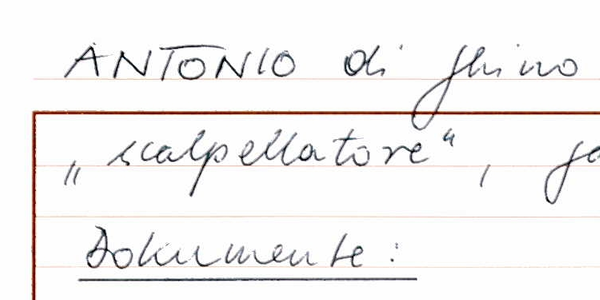 ANTONIO di Ghino
„scalpellatore“,
Dokumente: